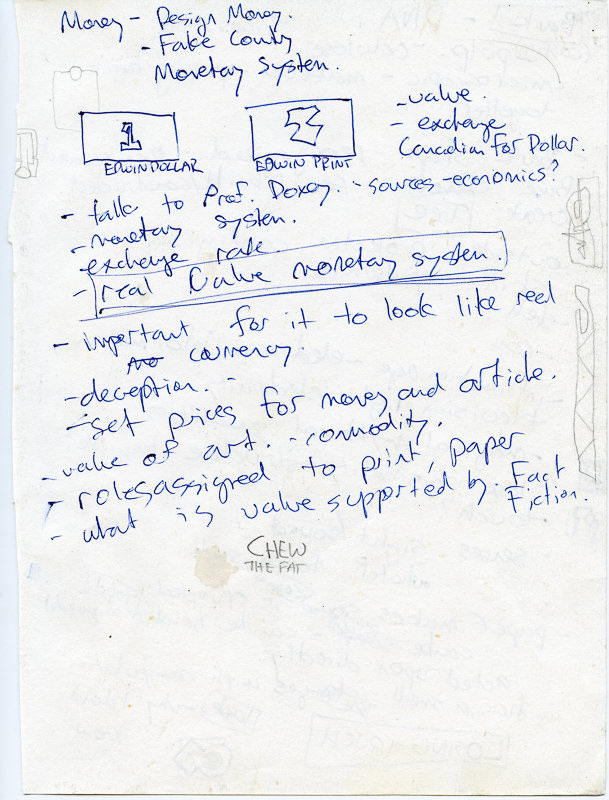 Money - Design Money.
- Fake County
Monetary System.
1
EDWIN DOLLAR
EDWIN PRINT
- value.
- exchange
Canadian for Dollar.
- talk to Prof. Doxey. - sources - economics?
- monetary system.
- exchange rate.
- real Value monetary system.
- important for it to look like reel
currency
- deception. -
- set prices for money and article.
- value of art. - commodity.
- roles assigned to print, paper
- what is value supported by. Fact
Fiction.
CHEW
THE FAT